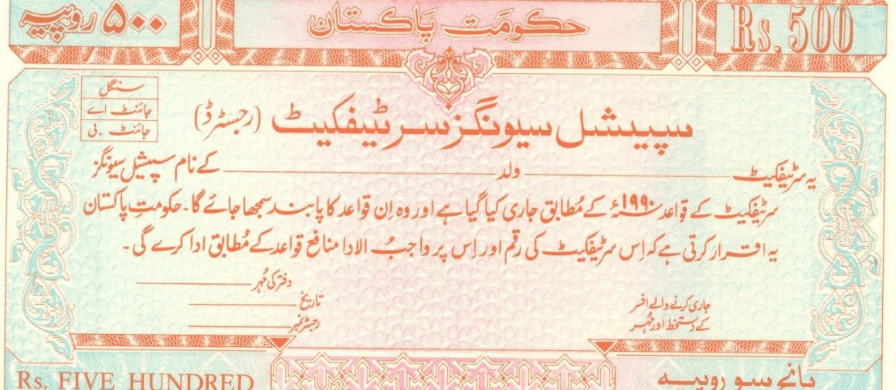 ۵۰۰ روپیہ
حکومَت پَاکستان
Rs. 500
سنگل
جائنٹ اے
جائنٹ بی
سپیشل سیونگز سرٹیفکیٹ (رجسٹرڈ)
یہ سرٹیفکیٹ ــــــــ ولد ــــــــ کے نام سپیشل سیونگز
سرٹیفکیٹ کے قواعد ۱۹۹۰ء کے مُطابق جاری کیا گیا ہے اور وہ اِن قواعد کا پابند سمجھا جائے گا۔ حکومتِ پاکستان
یہ اقرار کرتی ہے کہ اِس سرٹیفکیٹ کی رقم اور اِس پر واجبُ الادا منافع قواعد کے مُطابق ادا کرے گی۔
دفتر کی مُہر
تاریخ
رجسٹر نمبر
جاری کرنے والے افسر
کے دستخط اور مُہر
Rs. FIVE HUNDRED
پانچ سو روپیہ